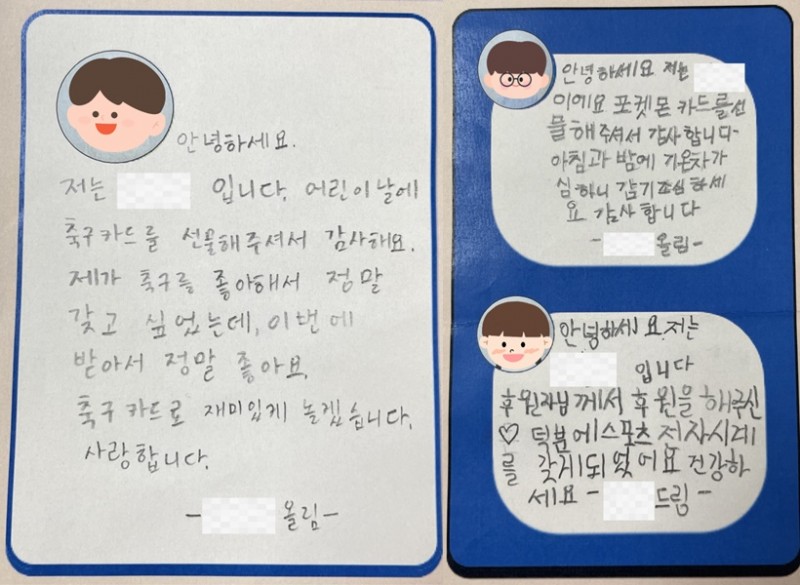 안녕하세요.
저는 입니다. 어린이날에
축구카드를 선물해주셔서 감사해요.
제가 축구를 좋아해서 정말
갖고 싶었는데, 이번에
받아서 정말 좋아요.
축구카드로 재미있게 놀겠습니다.
사랑합니다.
- 올림-
안녕하세요 저는
이에요 포켓몬 카드를선
물해주셔서 감사합니다
아침과 밤에 기온차가
심하니 감기조심하세
요 감사합니다
- 올림-
안녕하세요.저는
입니다
후원자님께서 후원을 해주신
♡ 덕분에스포츠 전자시계
를 갖게되었어요 건강하
세요 - 드림-